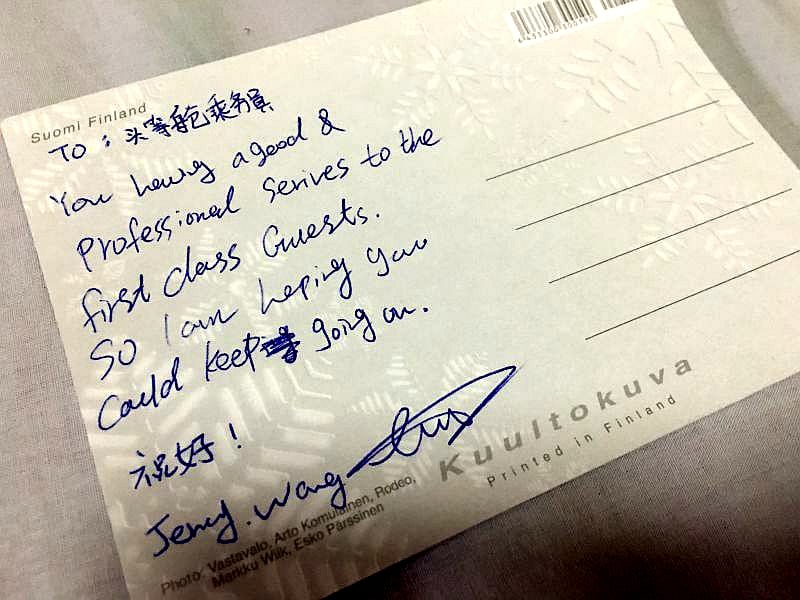 Suomi Finland
TO : 头等舱乘务員
You having a good &
Professional Serives to the
first class Guests.
SO I am hoping you
Could keep going on.
祝好！
Jenny. Wang
Kuultokuva
Printed in Finland
Photo: Vastavalo, Arto Komulainen, Rodeo,
Markku Wilk, Esko Pärssinen